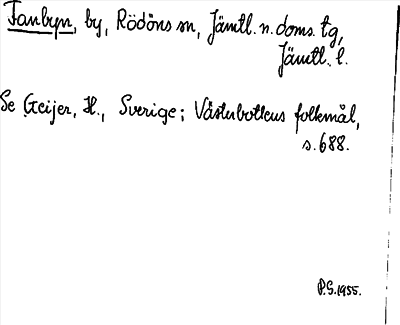 Fanbyn, by, Rödöns sn, Jämtl. n. doms. tg,
Jämtl. l.
Se Geijer, H., Sverige; Västerbottens folkmål,
s. 688.
P.S. 1955.